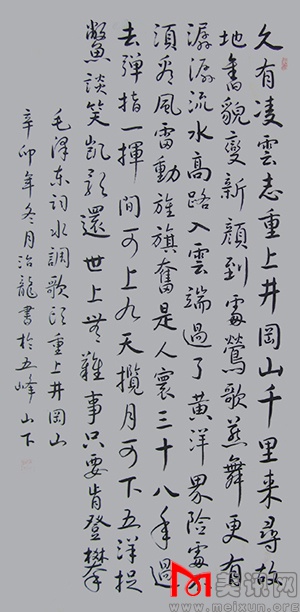 久有凌雲志重上井岡山千里来尋故
地舊貌變新顔到處鶯歌燕舞更有
潺潺流水高路入雲端過了黄洋界險處不
須看風雷動旌旗奮是人寰三十八年過
去彈指一揮間可上九天攬月可下五洋捉
鱉談笑凱歌還世上無難事只要肯登攀
毛澤东词水調歌頭重上井岡山
辛卯年冬月治龍書於五峰山下
美讯网
www.meixun.org